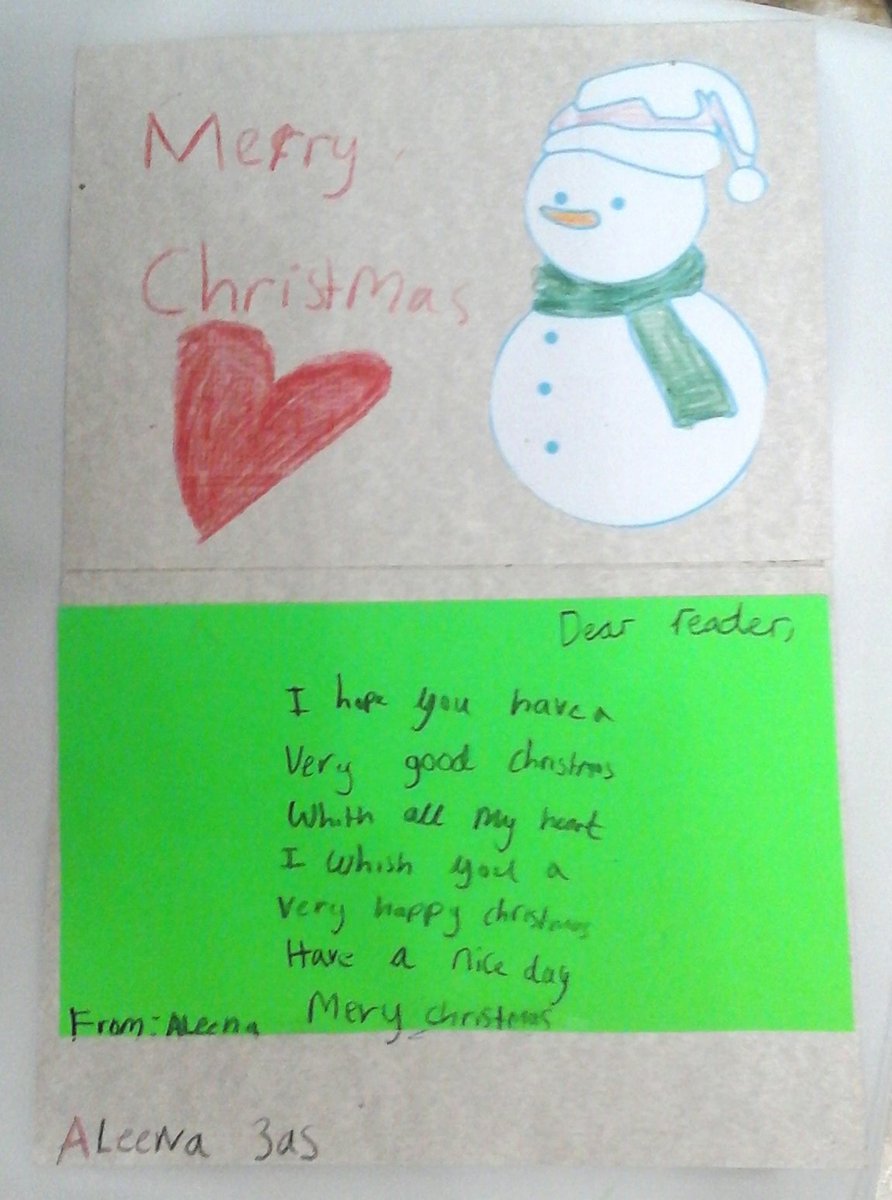 Merry
Christmas
Dear reader,
I hope you have a
Very good christmas
Whith all my heart
I whish you a
very happy christmas
Have a nice day
Mery christmas
From: ALeena
ALeeNa 3as